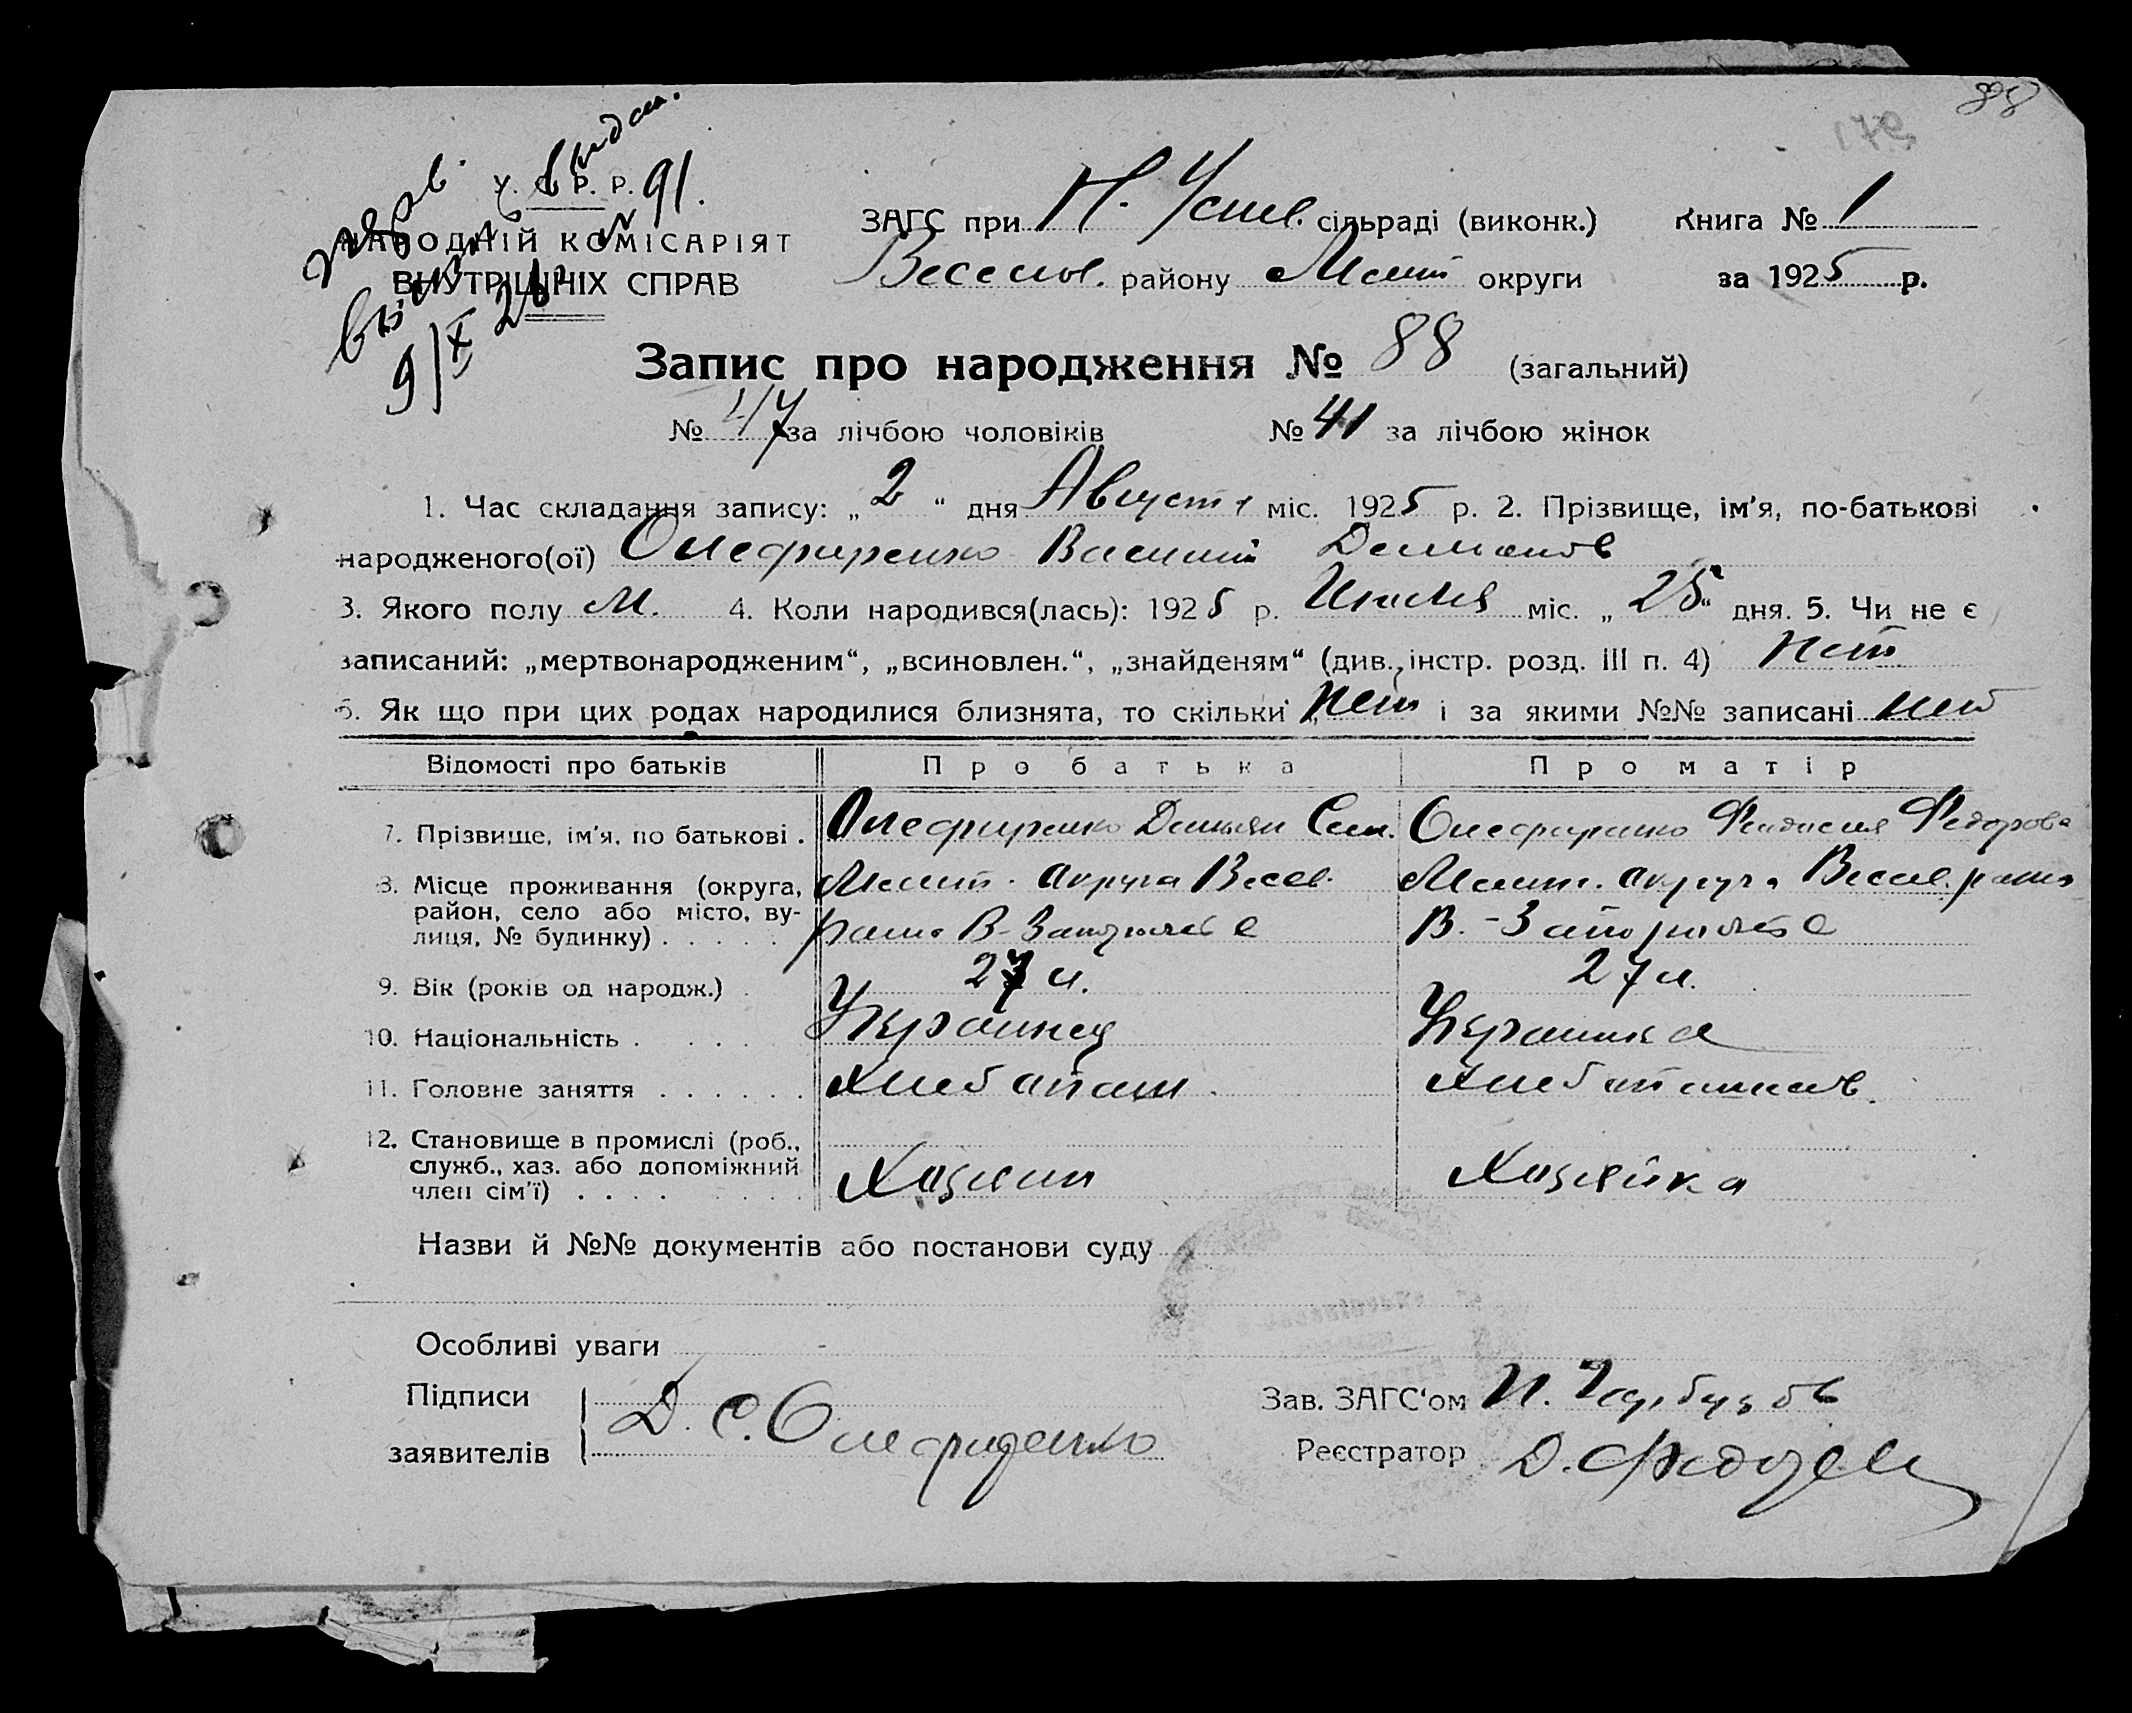 88
У. С. Р. Р.
№ 91.
НАРОДНІЙ КОМІСАРІЯТ
ВНУТРІШНІХ СПРАВ
9/X 26
ЗАГС при Н. Успев. сільраді (виконк.) Книга № 1
Веселов. району Мелит округи за 1925 р.
Запис про народження № 88 (загальний)
№ 47 за лічбою чоловіків № 41 за лічбою жінок
1. Час складання запису: „ 2 “ дня Августа міс. 1925 р. 2. Прізвище, ім'я, по-батькові
народженого(ої) Олефиренко Василий Демьянов
3. Якого полу М. 4. Коли народився(лась): 1925 р. Июля міс. „ 25 “ дня. 5. Чи не є
записаний: „мертвонародженим“, „всиновлен.“, „знайденям“ (див. інстр. розд. III п. 4) нет
6. Як що при цих родах народилися близнята, то скільки нет і за якими №№ записані нет
Відомості про батьків Про батька Про матір
7. Прізвище, ім'я, по батькові . Олефиренко Демьян Сем. Олефиренко Федорова
8. Місце проживання (округа, Мелит. округа Весел. Мелит. округа Весел. района
район, село або місто, вулиця, № будинку) . . . . . района В-Запорожье В.-Запорожье
9. Вік (років од народж.) . 27 л. 27 л.
10. Національність . . . . Украинец Украинка
11. Головне заняття . . . . . . Хлебопаш. Хлебопашев.
12. Становище в промислі (роб., служб., хаз. або допоміжний член сім'ї) . . . . Хозяин Хозяйка
Назви й №№ документів або постанови суду
Особливі уваги
Підписи заявителів Д. С. Олефиренко
Зав. ЗАГС'ом
Реєстратор